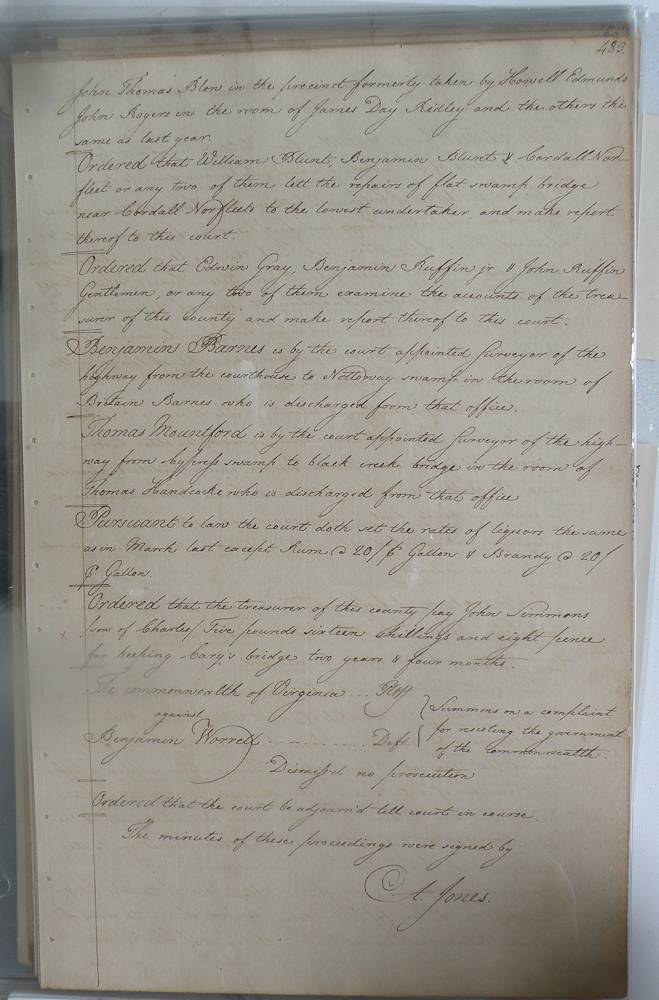 483.
John Thomas Blow in the precinct formerly taken by Howell Edmunds
John Rogers in the room of James Day Ridley and the others the
same as last year.
Ordered that William Blunt, Benjamin Blunt & Cordall Nor-
fleet or any two of them lett the repairs of flat swamp bridge
near Cordall Norfleets to the lowest undertaker, and make report
thereof to this court.
Ordered that Edwin Gray, Benjamin Ruffin jr & John Ruffin
Gentlemen, or any two of them examine the accounts of the trea-
surer of this County and make report thereof to this court.
Benjamin Barnes is by the court appointed Surveyor of the
highway from the courthouse to Nottoway swamp in the room of
Britain Barnes who is discharged from that office.
Thomas Mountford is by the court appointed Surveyor of the high-
way from Cypress swamp to black creek bridge in the room of
Thomas Handcocke who is discharged from that office
Pursuant to law the court doth set the rates of liquors the same
as in March last except Rum @ 20/ ⅌ Gallon & Brandy @ 20/
⅌ Gallon.
Ordered that the treasurer of this county pay John Simmons
/son of Charles/ Five pounds sixteen shillings and eight pence
for keeping Cary's bridge two years & four months.
The commonwealth of Virginia ... Pltff
against
Benjamin Worrell ............ Deft.
Summons on a complaint
for resisting the government
of the commonwealth.
Dismiss'd no prosecution
Ordered that the court be adjourn'd till court in course.
The minutes of these proceedings were signed by
A. Jones.